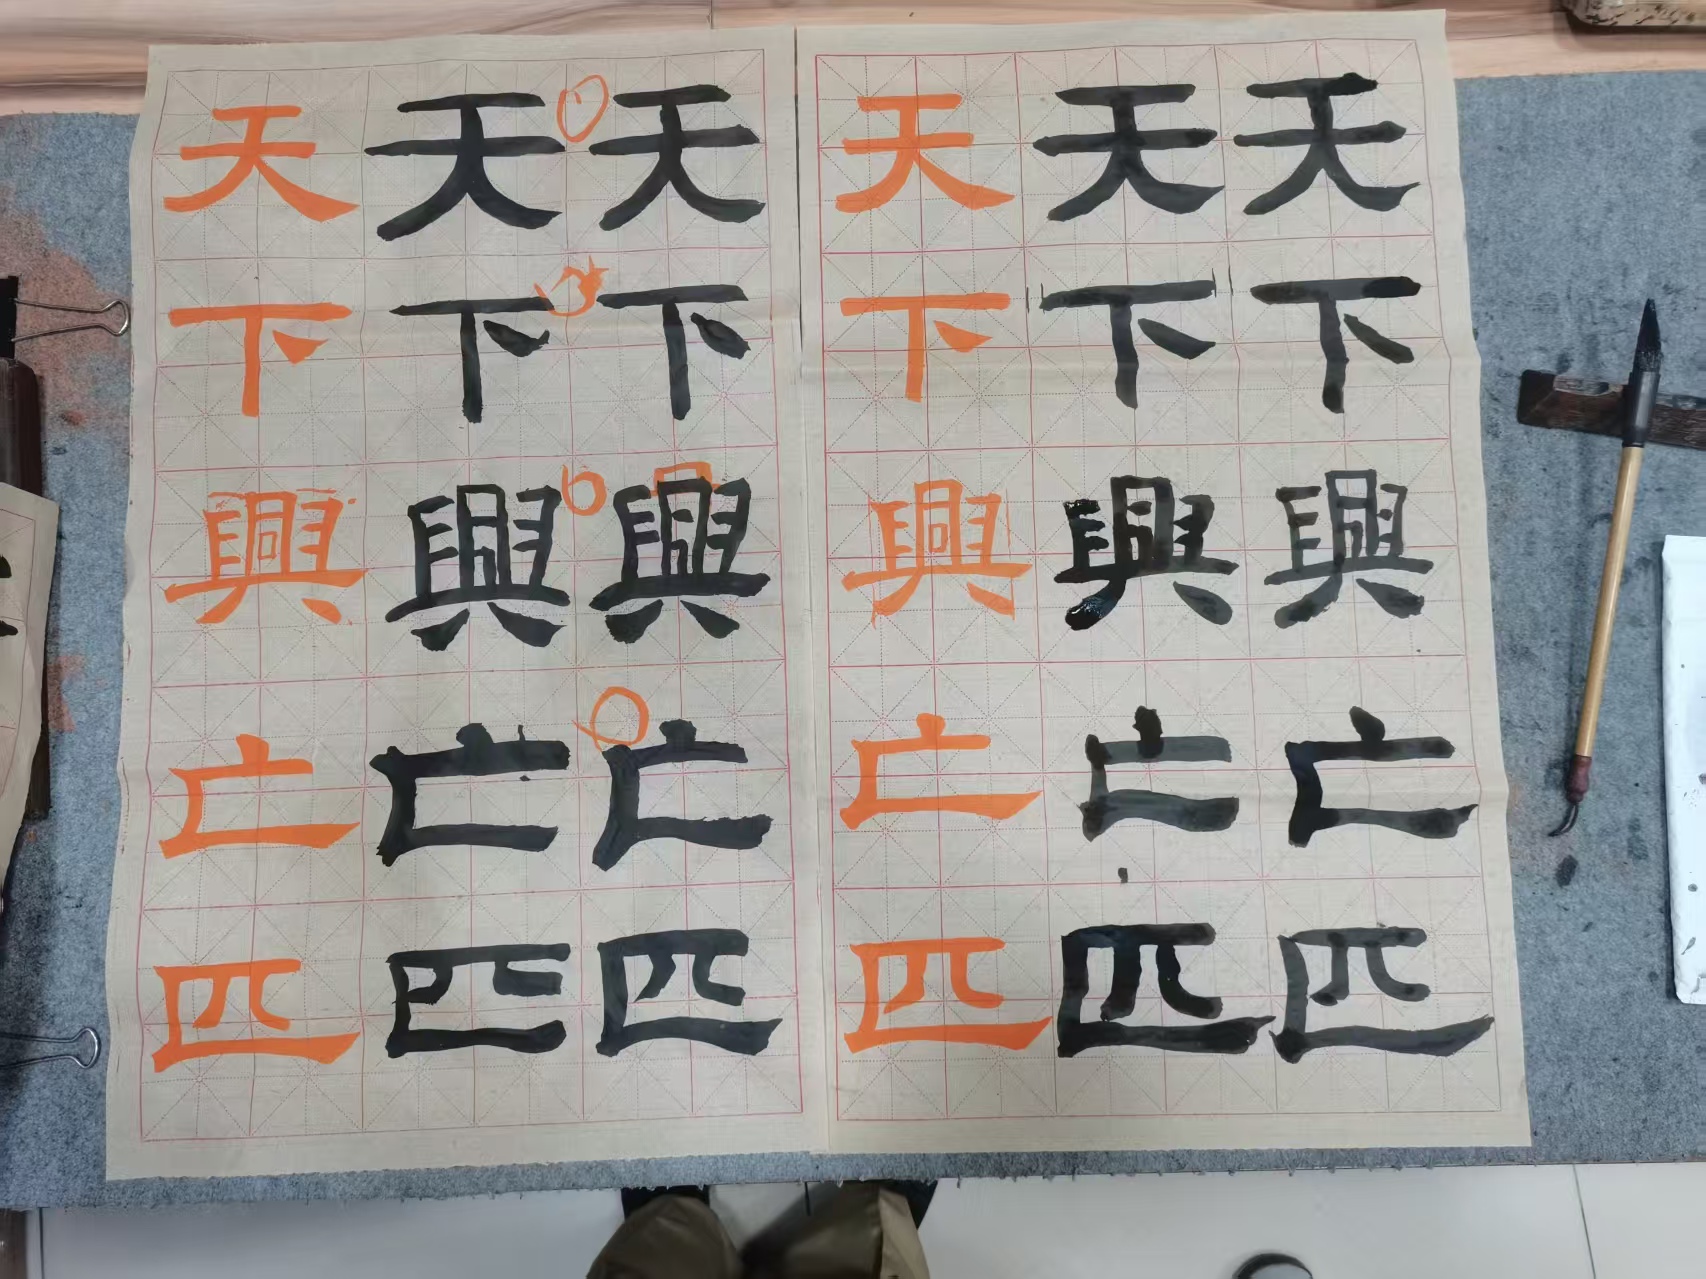 天天天 天天天
下下下 下下下
興興興 興興興
亡亡亡 亡亡亡
匹匹匹 匹匹匹